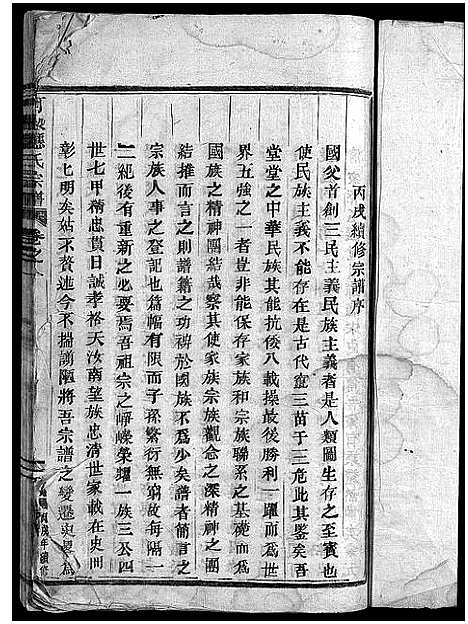 丙戌續修宗譜序
國父首創三民主義民族主義者是人類圖生存之至寶也
使民族主義不能存在是古代竄三苗于三危此其鑒矣吾
堂堂之中華民族其能抗倭八載操故後勝利一躍而為世
界五強之一者豈非能保存家族和宗族聯系之基礎而為
國族之精神團結哉察其使家族宗族觀念之深精神之團
結推而言之則譜籍之功裨於國族不為少矣譜者簡言之
宗族人事之登記也為幅有限而子孫繁衍無窮故每隔一
二紀後有重新之必要焉吾祖宗之崢嶸榮耀一族三公四
世七甲精忠貫日誠孝格天汝南望族忠清世家載在史冊
彰七明矣姑不贅述今不揣謭陋將吾宗譜之變遷與譽為
氏宗譜
卷之
戌年續修